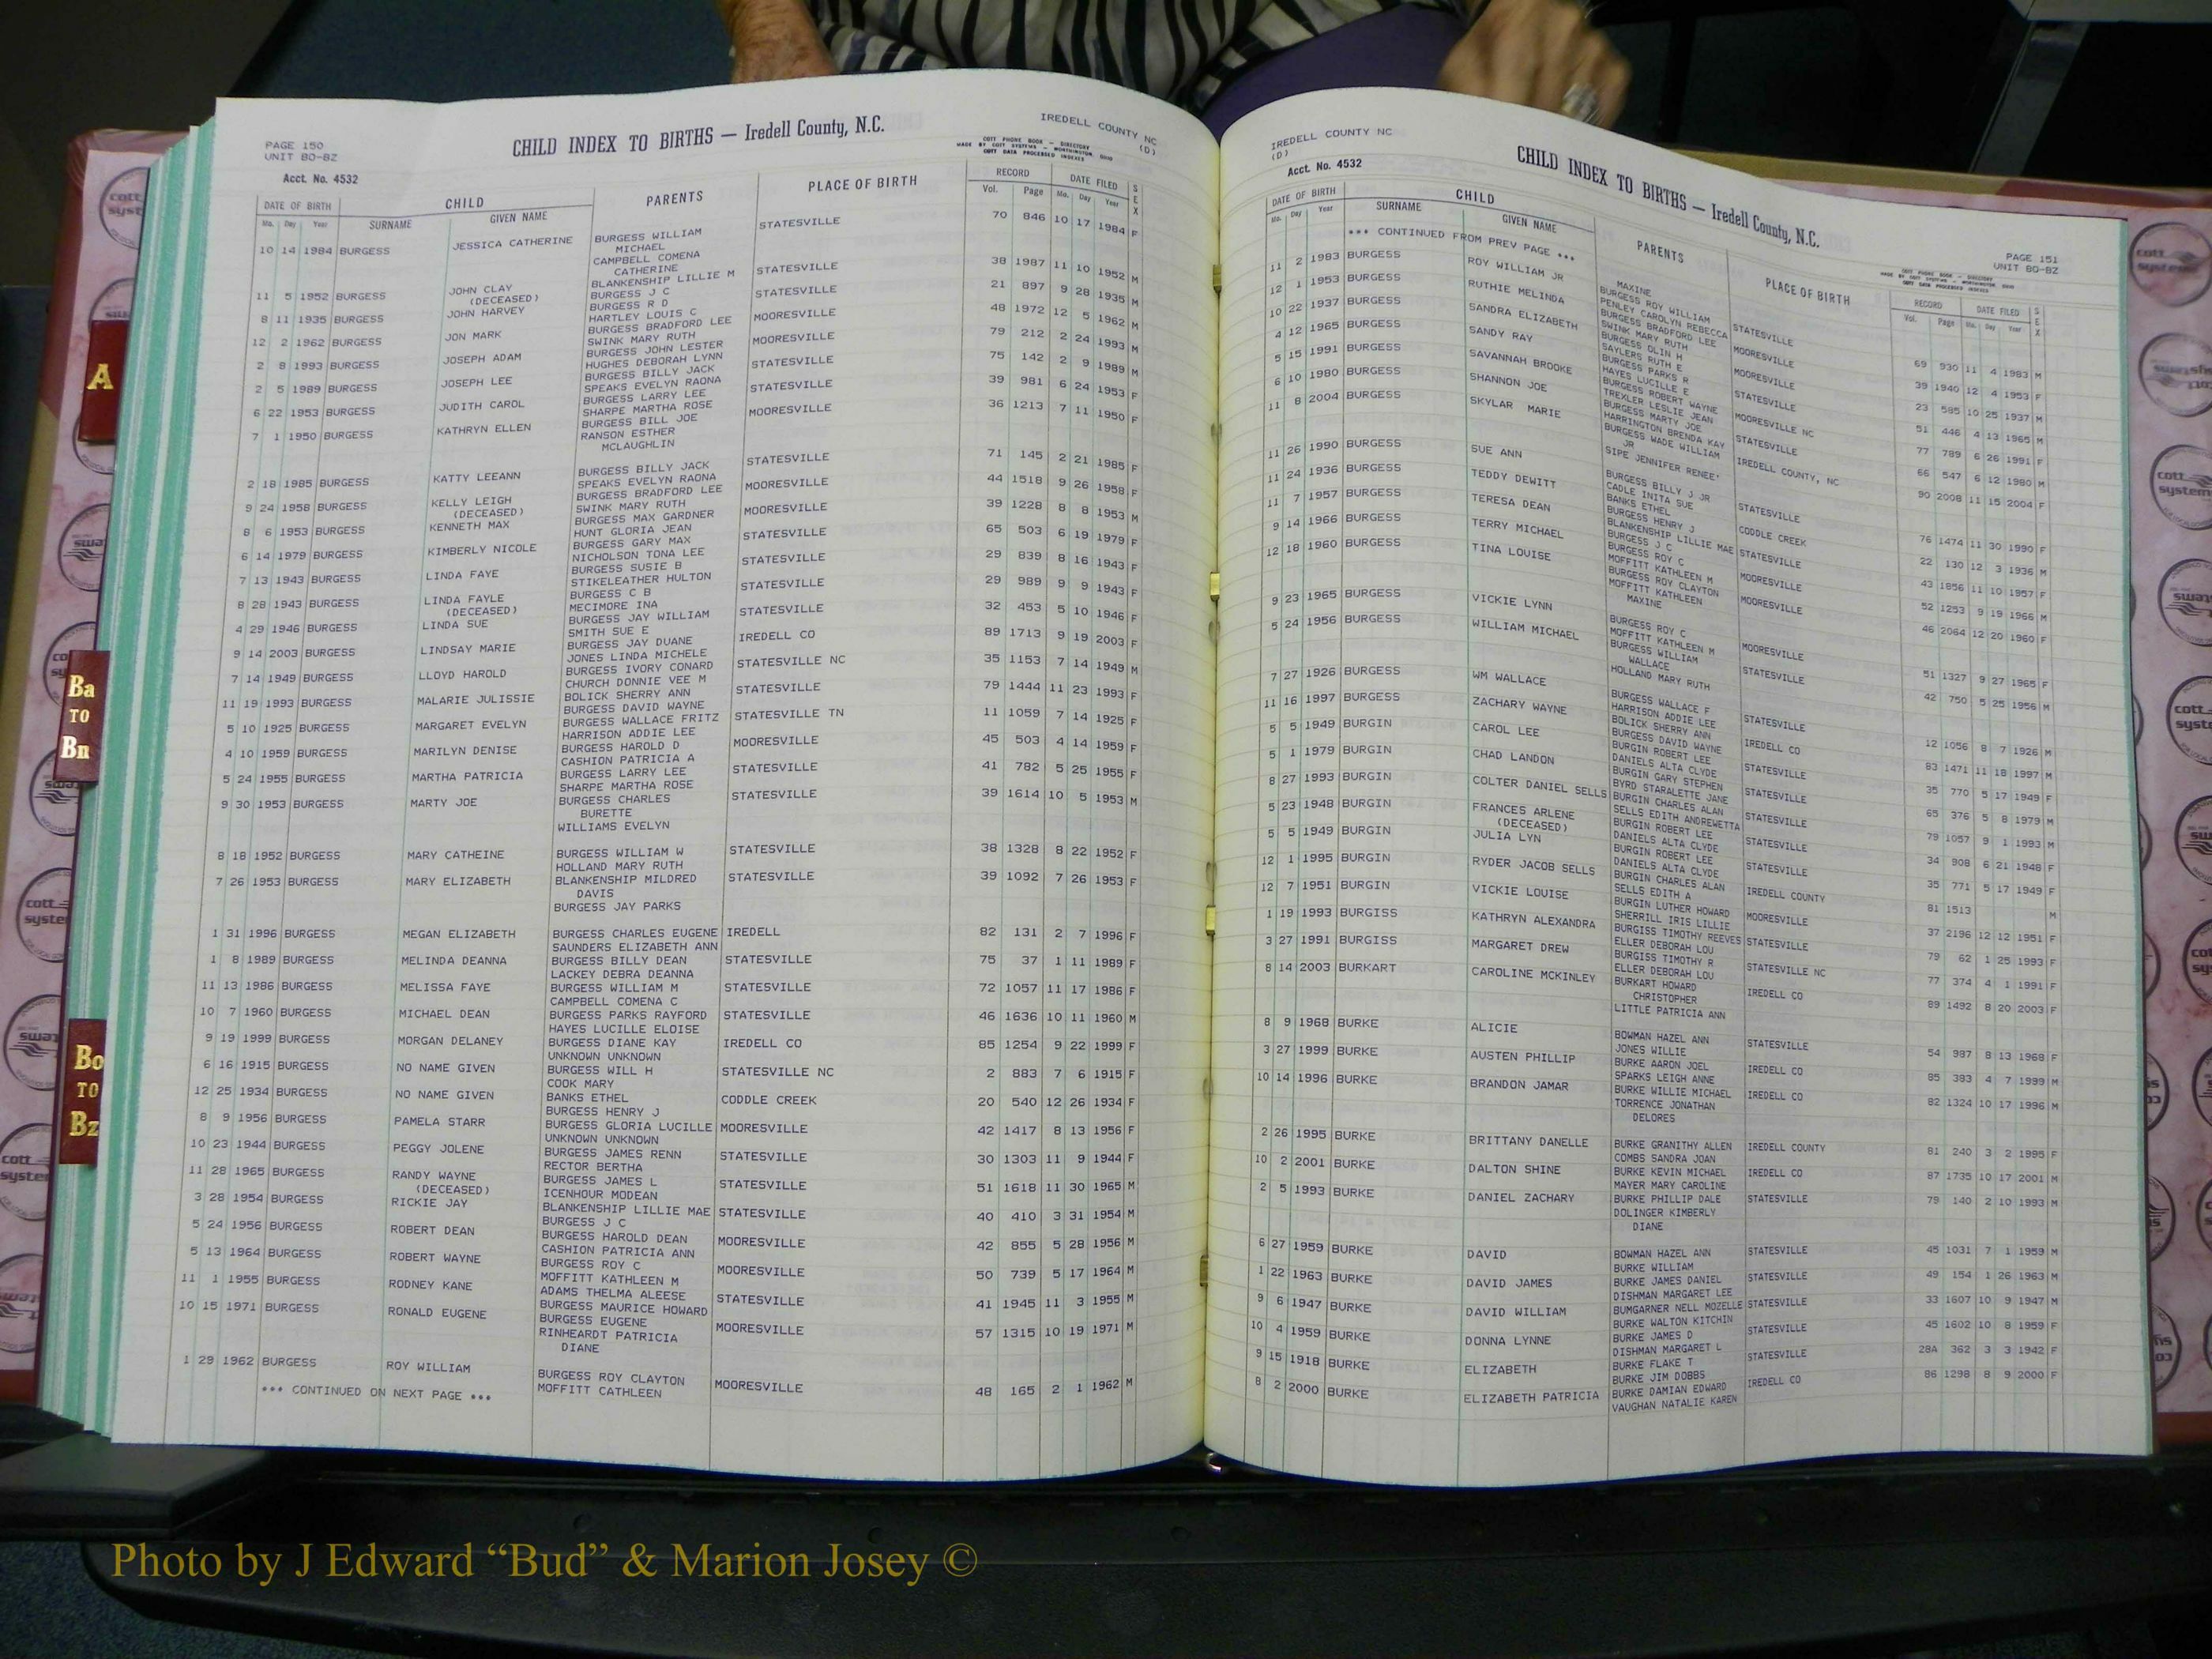 PAGE 150
UNIT BO-BZ
Acct. No. 4532
CHILD INDEX TO BIRTHS — Iredell County, N.C.
IREDELL COUNTY NC
(D)
COTT PHONE BOOK - DIRECTORY
MADE BY COTT SYSTEMS - WORTHINGTON, OHIO
COTT DATA PROCESSED INDEXES
DATE OF BIRTH CHILD PARENTS PLACE OF BIRTH RECORD DATE FILED SEX
Mo. Day Year SURNAME GIVEN NAME Vol. Page Mo. Day Year
10 14 1984 BURGESS JESSICA CATHERINE BURGESS WILLIAM STATESVILLE 70 846 10 17 1984 F
MICHAEL
CAMPBELL COMENA
CATHERINE
11 5 1952 BURGESS JOHN CLAY BLANKENSHIP LILLIE M STATESVILLE 38 1987 11 10 1952 M
(DECEASED) BURGESS J C
8 11 1935 BURGESS JOHN HARVEY BURGESS R D STATESVILLE 21 897 9 28 1935 M
HARTLEY LOUIS C
12 2 1962 BURGESS JON MARK BURGESS BRADFORD LEE MOORESVILLE 48 1972 12 5 1962 M
SWINK MARY RUTH
2 8 1993 BURGESS JOSEPH ADAM BURGESS JOHN LESTER MOORESVILLE 79 212 2 24 1993 M
HUGHES DEBORAH LYNN
2 5 1989 BURGESS JOSEPH LEE BURGESS BILLY JACK STATESVILLE 75 142 2 9 1989 M
SPEAKS EVELYN RAONA
6 22 1953 BURGESS JUDITH CAROL BURGESS LARRY LEE STATESVILLE 39 981 6 24 1953 F
SHARPE MARTHA ROSE
7 1 1950 BURGESS KATHRYN ELLEN BURGESS BILL JOE MOORESVILLE 36 1213 7 11 1950 F
RANSON ESTHER
MCLAUGHLIN
2 18 1985 BURGESS KATTY LEEANN BURGESS BILLY JACK STATESVILLE 71 145 2 21 1985 F
SPEAKS EVELYN RAONA
9 24 1958 BURGESS KELLY LEIGH BURGESS BRADFORD LEE MOORESVILLE 44 1518 9 26 1958 F
(DECEASED) SWINK MARY RUTH
8 6 1953 BURGESS KENNETH MAX BURGESS MAX GARDNER MOORESVILLE 39 1228 8 8 1953 M
HUNT GLORIA JEAN
6 14 1979 BURGESS KIMBERLY NICOLE BURGESS GARY MAX STATESVILLE 65 503 6 19 1979 F
NICHOLSON TONA LEE
7 13 1943 BURGESS LINDA FAYE BURGESS SUSIE B STATESVILLE 29 839 8 16 1943 F
STIKELEATHER HULTON
8 28 1943 BURGESS LINDA FAYLE BURGESS C B STATESVILLE 29 989 9 9 1943 F
(DECEASED) MECIMORE INA
4 29 1946 BURGESS LINDA SUE BURGESS JAY WILLIAM STATESVILLE 32 453 5 10 1946 F
SMITH SUE E
9 14 2003 BURGESS LINDSAY MARIE BURGESS JAY DUANE IREDELL CO 89 1713 9 19 2003 F
JONES LINDA MICHELE
7 14 1949 BURGESS LLOYD HAROLD BURGESS IVORY CONARD STATESVILLE NC 35 1153 7 14 1949 M
CHURCH DONNIE VEE M
11 19 1993 BURGESS MALARIE JULISSIE BOLICK SHERRY ANN STATESVILLE 79 1444 11 23 1993 F
BURGESS DAVID WAYNE
5 10 1925 BURGESS MARGARET EVELYN BURGESS WALLACE FRITZ STATESVILLE TN 11 1059 7 14 1925 F
HARRISON ADDIE LEE
4 10 1959 BURGESS MARILYN DENISE BURGESS HAROLD D MOORESVILLE 45 503 4 14 1959 F
CASHION PATRICIA A
5 24 1955 BURGESS MARTHA PATRICIA BURGESS LARRY LEE STATESVILLE 41 782 5 25 1955 F
SHARPE MARTHA ROSE
9 30 1953 BURGESS MARTY JOE BURGESS CHARLES STATESVILLE 39 1614 10 5 1953 M
BURETTE
WILLIAMS EVELYN
8 18 1952 BURGESS MARY CATHEINE BURGESS WILLIAM W STATESVILLE 38 1328 8 22 1952 F
HOLLAND MARY RUTH
7 26 1953 BURGESS MARY ELIZABETH BLANKENSHIP MILDRED STATESVILLE 39 1092 7 26 1953 F
DAVIS
BURGESS JAY PARKS
1 31 1996 BURGESS MEGAN ELIZABETH BURGESS CHARLES EUGENE IREDELL 82 131 2 7 1996 F
SAUNDERS ELIZABETH ANN
1 8 1989 BURGESS MELINDA DEANNA BURGESS BILLY DEAN STATESVILLE 75 37 1 11 1989 F
LACKEY DEBRA DEANNA
11 13 1986 BURGESS MELISSA FAYE BURGESS WILLIAM M STATESVILLE 72 1057 11 17 1986 F
CAMPBELL COMENA C
10 7 1960 BURGESS MICHAEL DEAN BURGESS PARKS RAYFORD STATESVILLE 46 1636 10 11 1960 M
HAYES LUCILLE ELOISE
9 19 1999 BURGESS MORGAN DELANEY BURGESS DIANE KAY IREDELL CO 85 1254 9 22 1999 F
UNKNOWN UNKNOWN
6 16 1915 BURGESS NO NAME GIVEN BURGESS WILL H STATESVILLE NC 2 883 7 6 1915 F
COOK MARY
12 25 1934 BURGESS NO NAME GIVEN BANKS ETHEL CODDLE CREEK 20 540 12 26 1934 F
BURGESS HENRY J
8 9 1956 BURGESS PAMELA STARR BURGESS GLORIA LUCILLE MOORESVILLE 42 1417 8 13 1956 F
UNKNOWN UNKNOWN
10 23 1944 BURGESS PEGGY JOLENE BURGESS JAMES RENN STATESVILLE 30 1303 11 9 1944 F
RECTOR BERTHA
11 28 1965 BURGESS RANDY WAYNE BURGESS JAMES L STATESVILLE 51 1618 11 30 1965 M
(DECEASED) ICENHOUR MODEAN
3 28 1954 BURGESS RICKIE JAY BLANKENSHIP LILLIE MAE STATESVILLE 40 410 3 31 1954 M
BURGESS J C
5 24 1956 BURGESS ROBERT DEAN BURGESS HAROLD DEAN MOORESVILLE 42 855 5 28 1956 M
CASHION PATRICIA ANN
5 13 1964 BURGESS ROBERT WAYNE BURGESS ROY C MOORESVILLE 50 739 5 17 1964 M
MOFFITT KATHLEEN M
11 1 1955 BURGESS RODNEY KANE ADAMS THELMA ALEESE STATESVILLE 41 1945 11 3 1955 M
BURGESS MAURICE HOWARD
10 15 1971 BURGESS RONALD EUGENE BURGESS EUGENE MOORESVILLE 57 1315 10 19 1971 M
RINHEARDT PATRICIA
DIANE
1 29 1962 BURGESS ROY WILLIAM BURGESS ROY CLAYTON MOORESVILLE 48 165 2 1 1962 M
*** CONTINUED ON NEXT PAGE *** MOFFITT CATHLEEN
IREDELL COUNTY NC
(D)
Acct. No. 4532
CHILD INDEX TO BIRTHS — Iredell County, N.C.
PAGE 151
UNIT BO-BZ
COTT PHONE BOOK - DIRECTORY
MADE BY COTT SYSTEMS - WORTHINGTON, OHIO
COTT DATA PROCESSED INDEXES
DATE OF BIRTH CHILD PARENTS PLACE OF BIRTH RECORD DATE FILED SEX
Mo. Day Year SURNAME GIVEN NAME Vol. Page Mo. Day Year
*** CONTINUED FROM PREV PAGE ***
MAXINE
11 2 1983 BURGESS ROY WILLIAM JR BURGESS ROY WILLIAM STATESVILLE 69 930 11 4 1983 M
PENLEY CAROLYN REBECCA
12 1 1953 BURGESS RUTHIE MELINDA BURGESS BRADFORD LEE MOORESVILLE 39 1940 12 4 1953 F
SWINK MARY RUTH
10 22 1937 BURGESS SANDRA ELIZABETH BURGESS OLIN H MOORESVILLE 23 585 10 25 1937 M
SAYLERS RUTH E
4 12 1965 BURGESS SANDY RAY BURGESS PARKS R STATESVILLE 51 446 4 13 1965 M
HAYES LUCILLE E
5 15 1991 BURGESS SAVANNAH BROOKE BURGESS ROBERT WAYNE MOORESVILLE NC 77 789 6 26 1991 F
TREXLER LESLIE JEAN
6 10 1980 BURGESS SHANNON JOE BURGESS MARTY JOE STATESVILLE 66 547 6 12 1980 M
HARRINGTON BRENDA KAY
11 8 2004 BURGESS SKYLAR MARIE BURGESS WADE WILLIAM IREDELL COUNTY, NC 90 2008 11 15 2004 F
JR
SIPE JENNIFER RENEE'
11 26 1990 BURGESS SUE ANN BURGESS BILLY J JR STATESVILLE 76 1474 11 30 1990 F
CADLE INITA SUE
11 24 1936 BURGESS TEDDY DEWITT BANKS ETHEL CODDLE CREEK 22 130 12 3 1936 M
BURGESS HENRY J
11 7 1957 BURGESS TERESA DEAN BLANKENSHIP LILLIE MAE STATESVILLE 43 1856 11 10 1957 F
BURGESS J C
9 14 1966 BURGESS TERRY MICHAEL BURGESS ROY C MOORESVILLE 52 1253 9 19 1966 M
MOFFITT KATHLEEN M
12 18 1960 BURGESS TINA LOUISE BURGESS ROY CLAYTON MOORESVILLE 46 2064 12 20 1960 F
MOFFITT KATHLEEN
MAXINE
9 23 1965 BURGESS VICKIE LYNN BURGESS ROY C MOORESVILLE 51 1327 9 27 1965 F
MOFFITT KATHLEEN M
5 24 1956 BURGESS WILLIAM MICHAEL BURGESS WILLIAM STATESVILLE 42 750 5 25 1956 M
WALLACE
HOLLAND MARY RUTH
7 27 1926 BURGESS WM WALLACE BURGESS WALLACE F STATESVILLE 12 1056 8 7 1926 M
HARRISON ADDIE LEE
11 16 1997 BURGESS ZACHARY WAYNE BOLICK SHERRY ANN IREDELL CO 83 1471 11 18 1997 M
BURGESS DAVID WAYNE
5 5 1949 BURGIN CAROL LEE BURGIN ROBERT LEE STATESVILLE 35 770 5 17 1949 F
DANIELS ALTA CLYDE
5 1 1979 BURGIN CHAD LANDON BURGIN GARY STEPHEN STATESVILLE 65 376 5 8 1979 M
BYRD STARALETTE JANE
8 27 1993 BURGIN COLTER DANIEL SELLS BURGIN CHARLES ALAN STATESVILLE 79 1057 9 1 1993 M
SELLS EDITH ANDREWETTA
5 23 1948 BURGIN FRANCES ARLENE BURGIN ROBERT LEE STATESVILLE 34 908 6 21 1948 F
(DECEASED) DANIELS ALTA CLYDE
5 5 1949 BURGIN JULIA LYN BURGIN ROBERT LEE STATESVILLE 35 771 5 17 1949 F
DANIELS ALTA CLYDE
12 1 1995 BURGIN RYDER JACOB SELLS BURGIN CHARLES ALAN IREDELL COUNTY 81 1513 M
SELLS EDITH A
12 7 1951 BURGIN VICKIE LOUISE BURGIN LUTHER HOWARD MOORESVILLE 37 2196 12 12 1951 F
SHERRILL IRIS LILLIE
1 19 1993 BURGISS KATHRYN ALEXANDRA BURGISS TIMOTHY REEVES STATESVILLE 79 62 1 25 1993 F
ELLER DEBORAH LOU
3 27 1991 BURGISS MARGARET DREW BURGISS TIMOTHY R STATESVILLE NC 77 374 4 1 1991 F
ELLER DEBORAH LOU
8 14 2003 BURKART CAROLINE MCKINLEY BURKART HOWARD IREDELL CO 89 1492 8 20 2003 F
CHRISTOPHER
LITTLE PATRICIA ANN
8 9 1968 BURKE ALICIE BOWMAN HAZEL ANN STATESVILLE 54 987 8 13 1968 F
JONES WILLIE
3 27 1999 BURKE AUSTEN PHILLIP BURKE AARON JOEL IREDELL CO 85 383 4 7 1999 M
SPARKS LEIGH ANNE
10 14 1996 BURKE BRANDON JAMAR BURKE WILLIE MICHAEL IREDELL CO 82 1324 10 17 1996 M
TORRENCE JONATHAN
DELORES
2 26 1995 BURKE BRITTANY DANELLE BURKE GRANITHY ALLEN IREDELL COUNTY 81 240 3 2 1995 F
COMBS SANDRA JOAN
10 2 2001 BURKE DALTON SHINE BURKE KEVIN MICHAEL IREDELL CO 87 1735 10 17 2001 M
MAYER MARY CAROLINE
2 5 1993 BURKE DANIEL ZACHARY BURKE PHILLIP DALE STATESVILLE 79 140 2 10 1993 M
DOLINGER KIMBERLY
DIANE
6 27 1959 BURKE DAVID BOWMAN HAZEL ANN STATESVILLE 45 1031 7 1 1959 M
BURKE WILLIAM
1 22 1963 BURKE DAVID JAMES BURKE JAMES DANIEL STATESVILLE 49 154 1 26 1963 M
DISHMAN MARGARET LEE
9 6 1947 BURKE DAVID WILLIAM BUMGARNER NELL MOZELLE STATESVILLE 33 1607 10 9 1947 M
BURKE WALTON KITCHIN
10 4 1959 BURKE DONNA LYNNE BURKE JAMES D STATESVILLE 45 1602 10 8 1959 F
DISHMAN MARGARET L
9 15 1918 BURKE ELIZABETH BURKE FLAKE T STATESVILLE 28A 362 3 3 1942 F
BURKE JIM DOBBS
8 2 2000 BURKE ELIZABETH PATRICIA BURKE DAMIAN EDWARD IREDELL CO 86 1298 8 9 2000 F
VAUGHAN NATALIE KAREN
A
Ba
TO
Bn
Bo
TO
Bz
Photo by J Edward “Bud” & Marion Josey ©